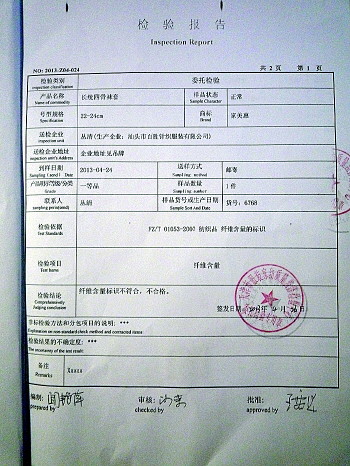 检 验 报 告
Inspection Report
NO: 2013-Z04-024 共 2 页 第 1 页
检验类别 Inspection classification 委托检验
产品名称 Name of commodity 长统四骨袜套 样品状态 Sample Character 正常
号型规格 Specification 22-24cm 商标 Brand 家美惠
送检企业 inspection unit 丛清(生产企业: 汕头市百胜针织服装有限公司)
送检企业地址 inspection unit's Address 企业地址见吊牌
到样日期 2013-04-24 送样方式 Sampling method 邮寄
Grade 一等品 样品数量 Sampling number 1 件
联系人 丛清 样品货号或生产日期 Sample Sort And Date 货号: 6768
检验依据 Test Standards FZ/T 01053-2007 纺织品 纤维含量的标识
检验项目 Test Items 纤维含量
检验结论 Comprehensively Judging conclusion 纤维含量标识不符合, 不合格。
签发日期
非标检验方法和分包项目的说明: ***
Explanation on non-standard check method and contracted items
检验结果的不确定度: ***
The uncertainty of the test result
备注 Remarks Xxxxx
编制: prepared by 审核: checked by 批准: approved by